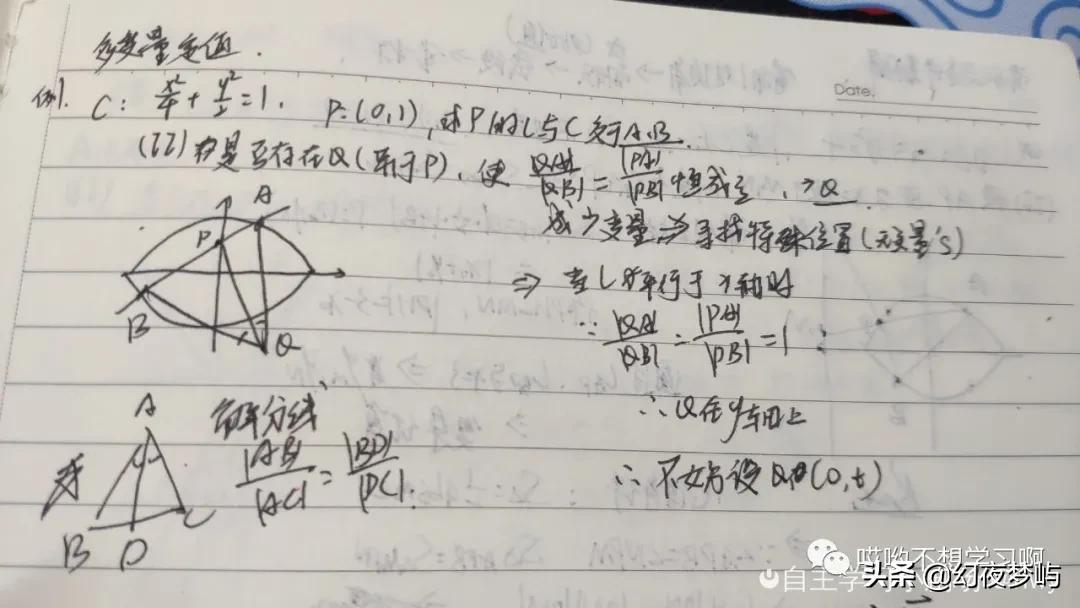 多变量定值.
例1. C: x²/4 + y²/2 = 1. P:(0,1), 过P的l与C交于A.B.
(II) 问是否存在Q(异于P), 使 |QA|/|QB| = |PA|/|PB| 恒成立, 求Q.
减少变量 ⇒ 寻找特殊位置(无变量's)
⇒ 当l平行于x轴时
∵ |QA|/|QB| = |PA|/|PB| = 1
∴ Q在y轴上
∴ 不妨设Q(0,t)
A
P
B
Q
角平分线
|AB|/|AC| = |BD|/|DC|.
A
B
D
C
Date.
哎哟不想学习啊
自主学习
头条@幻夜梦屿